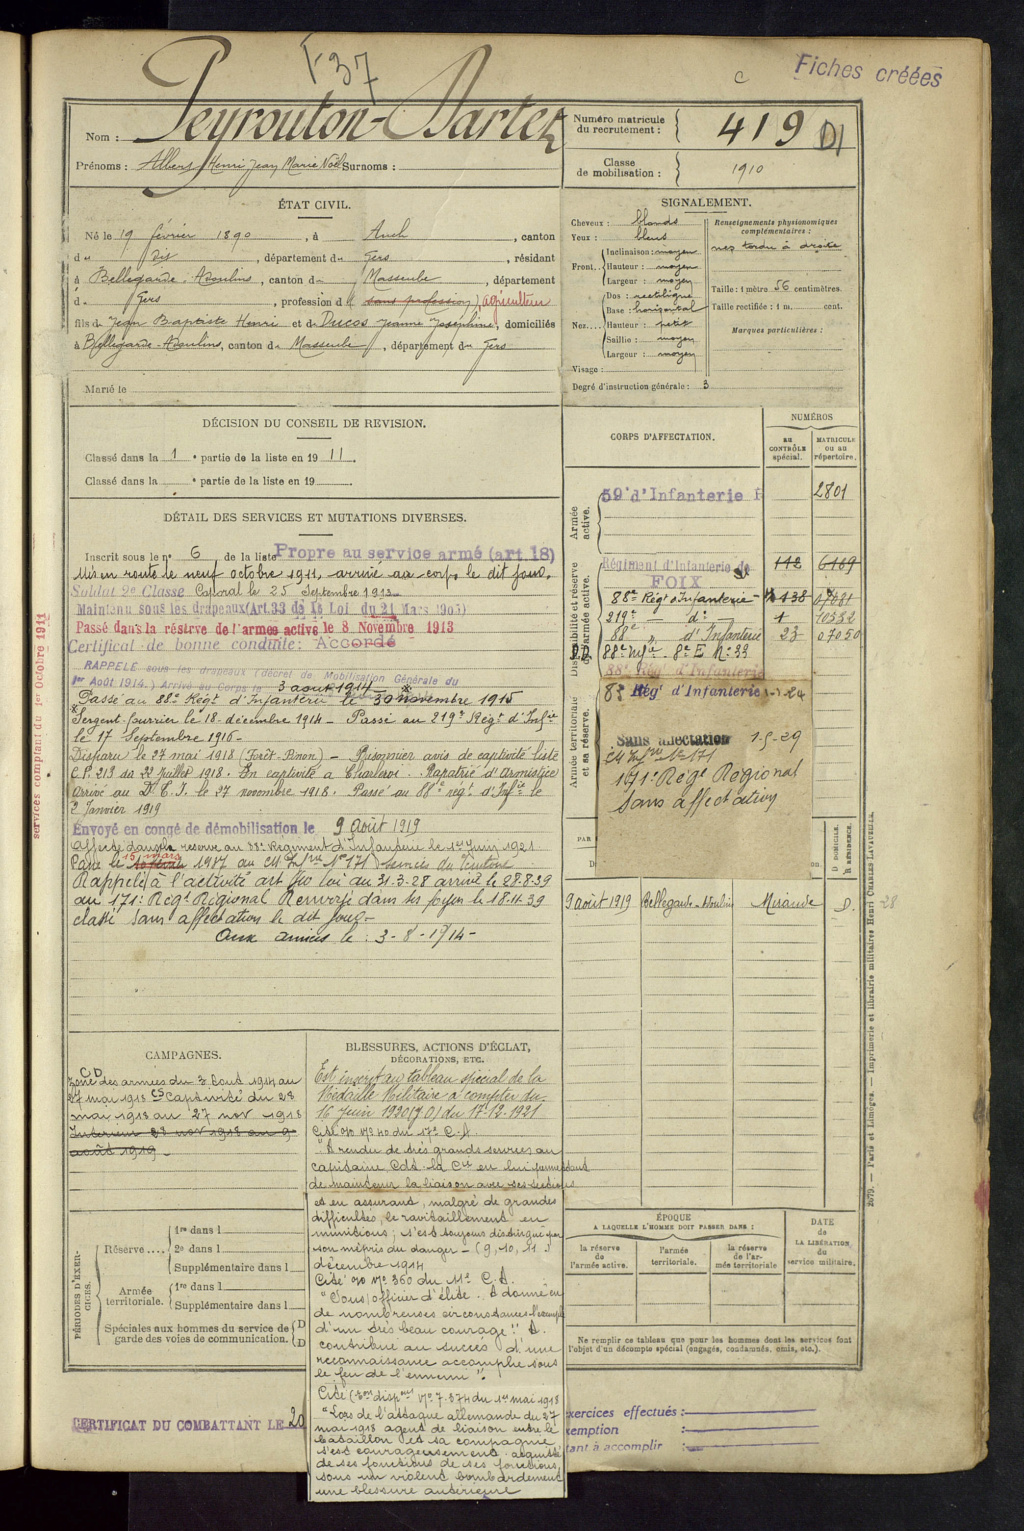 F 37
c
Fiches créées
Nom : Peyrouton-Dartet
Prénoms : Albert Henri Jean Marie Noël Surnoms :
Numéro matricule du recrutement : 419 DI
Classe de mobilisation : 1910
ÉTAT CIVIL.
Né le 19 février 1890, à Auch, canton
du dit, département du Gers, résidant
à Bellegarde-Adoulins, canton de Masseube, département
du Gers, profession de sans profession, agriculteur
fils de Jean Baptiste Henri et de Ducos Jeanne Joséphine, domiciliés
à Bellegarde-Adoulins, canton de Masseube, département du Gers
Marié le
SIGNALEMENT.
Cheveux : blonds
Yeux : bleus
Front. Inclinaison : moyen
Hauteur : moyen
Largeur : moyen
Nez. Dos : rectiligne
Base : horizontal
Hauteur : petit
Saillie : moyen
Largeur : moyen
Visage :
Degré d'instruction générale : 3
Renseignements physionomiques complémentaires :
nez tordu à droite
Taille : 1 mètre 56 centimètres.
Taille rectifiée : 1 m. cent.
Marques particulières :
DÉCISION DU CONSEIL DE REVISION.
Classé dans la 1e partie de la liste en 1911
Classé dans la e partie de la liste en 19
DÉTAIL DES SERVICES ET MUTATIONS DIVERSES.
Inscrit sous le n° 6 de la liste Propre au service armé (art. 18)
Mis en route le neuf octobre 1911, arrivé au corps le dit jour.
Soldat 2e Classe Caporal le 25 Septembre 1913
Maintenu sous les drapeaux (Art. 33 de la Loi du 21 Mars 1905)
Passé dans la réserve de l'armée active le 8 Novembre 1913
Certificat de bonne conduite : Accordé
RAPPELÉ sous les drapeaux (décret de Mobilisation Générale du
1er Août 1914.) Arrivé au Corps le 3 août 1914
Passé au 88e Régt d'Infanterie le 30 novembre 1915
Sergent fourrier le 18 décembre 1914 - Passé au 219e Régt d'Infie
le 17 Septembre 1916 -
Disparu le 27 mai 1918 (Forêt-Pinon) - Prisonnier avis de captivité liste
C.P. 213 du 22 Juillet 1918. En captivité à Charleroi. Rapatrié d'armistice
arrivé au D. C. I. le 27 novembre 1918. Passé au 88e régt d'Infie le
2 Janvier 1919
Envoyé en congé de démobilisation le 9 Août 1919
Affecté dans la réserve au 88e Régiment d'Infanterie le 1er Juin 1921
Passé le 15 mars 1927 au CM Infrie N° 171
Rappelé à l'activité art 40 loi du 31-3-28 arrivé le 28-8-39
au 171e Régt Régional Renvoyé dans ses foyers le 18-11-39
classé sans affectation le dit jour -
Aux armées le : 3-8-1914 -
services comptant du 1er Octobre 1911
CORPS D'AFFECTATION.
NUMÉROS
au CONTRÔLE spécial.
MATRICULE ou au répertoire.
Armée active.
59e d'Infanterie 2801
Disponibilité et réserve de l'armée active.
Régiment d'Infanterie de FOIX 112 6169
88e Régt d'Infanterie 138 07631
219e - d° - 1 10532
88e " d'Infanterie 23 07050
88e Infie - 8e E N° 33
88e Rég. d'Infanterie
Armée territoriale et sa réserve.
83 Rég. d'Infanterie 1-1-24
Sans affectation 1-5-29
CM Infrie N° 171
171e Régt Régional
Sans affectation
PAR
D. DOMICILE.
R. RÉSIDENCE.
9 août 1919 Bellegarde-Adoulins Mirande D.
CAMPAGNES.
C D
Zone des armées du 3 Aout 1914 au
27 mai 1918 CS Captivité du 28
mai 1918 au 27 nov 1918
Intérieur 28 nov 1918 au 9
août 1919 -
BLESSURES, ACTIONS D'ÉCLAT,
DÉCORATIONS, ETC.
Est inscrit au tableau spécial de la
Médaille Militaire à compter du
16 Juin 1920 (J.O) du 17-12-1921
Cité O/O N° 40 du 17e C.A.
"A rendu de très grands services au
capitaine Cdt la Cie en lui permettant
de maintenir la liaison avec ses sections
et en assurant, malgré de grandes
difficultés, le ravitaillement en
munitions ; s'est toujours distingué par
son mépris du danger - (9, 10, 11
décembre 1914
Cité O/O N° 360 du 11e C.A.
"Sous/officier d'élite. A donné en
de nombreuses circonstances l'exemple
d'un très beau courage !" A
contribué au succès d'une
reconnaissance accomplie sous
le feu de l'ennemi".
Cité N° 7.574 du 1er mai 1918
"Lors de l'attaque allemande du 27
mai 1918 agent de liaison entre le
bataillon et sa compagnie
s'est courageusement acquitté
de ses fonctions de ses fonctions,
sous un violent bombardement
une blessure antérieure
PÉRIODES D'EXERCICES.
Réserve.... 1re dans l
2e dans l
Supplémentaire dans l
Armée territoriale. 1re dans l
Supplémentaire dans l
Spéciales aux hommes du service de garde des voies de communication. D
D
CERTIFICAT DU COMBATTANT LE 20
ÉPOQUE
A LAQUELLE L'HOMME DOIT PASSER DANS :
la réserve de l'armée active.
l'armée territoriale.
la réserve de l'armée territoriale
DATE de LA LIBÉRATION du service militaire.
Ne remplir ce tableau que pour les hommes dont les services font
l'objet d'un décompte spécial (engagés, condamnés, omis, etc.).
exercices effectués :
exemption :
tant à accomplir :
2079. — Paris et Limoges. — Imprimerie et librairie militaires Henri CHARLES-LAVAUZELLE.
28